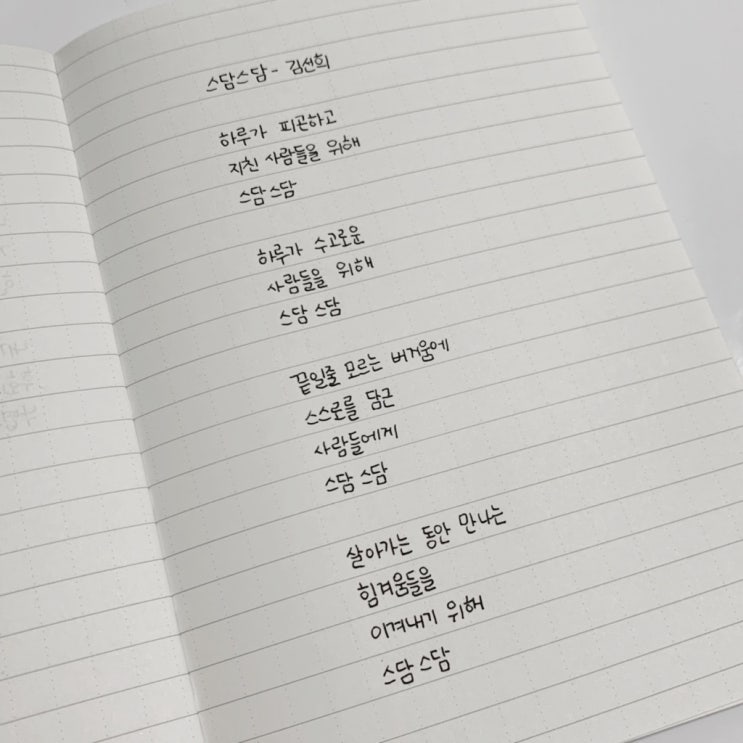 스담스담 - 김선희
하루가 피곤하고
지친 사람들을 위해
스담스담
하루가 수고로운
사람들을 위해
스담 스담
끝일줄 모르는 버거움에
스스로를 담근
사람들에게
스담 스담
살아가는 동안 만나는
힘겨움들을
이겨내기 위해
스담스담